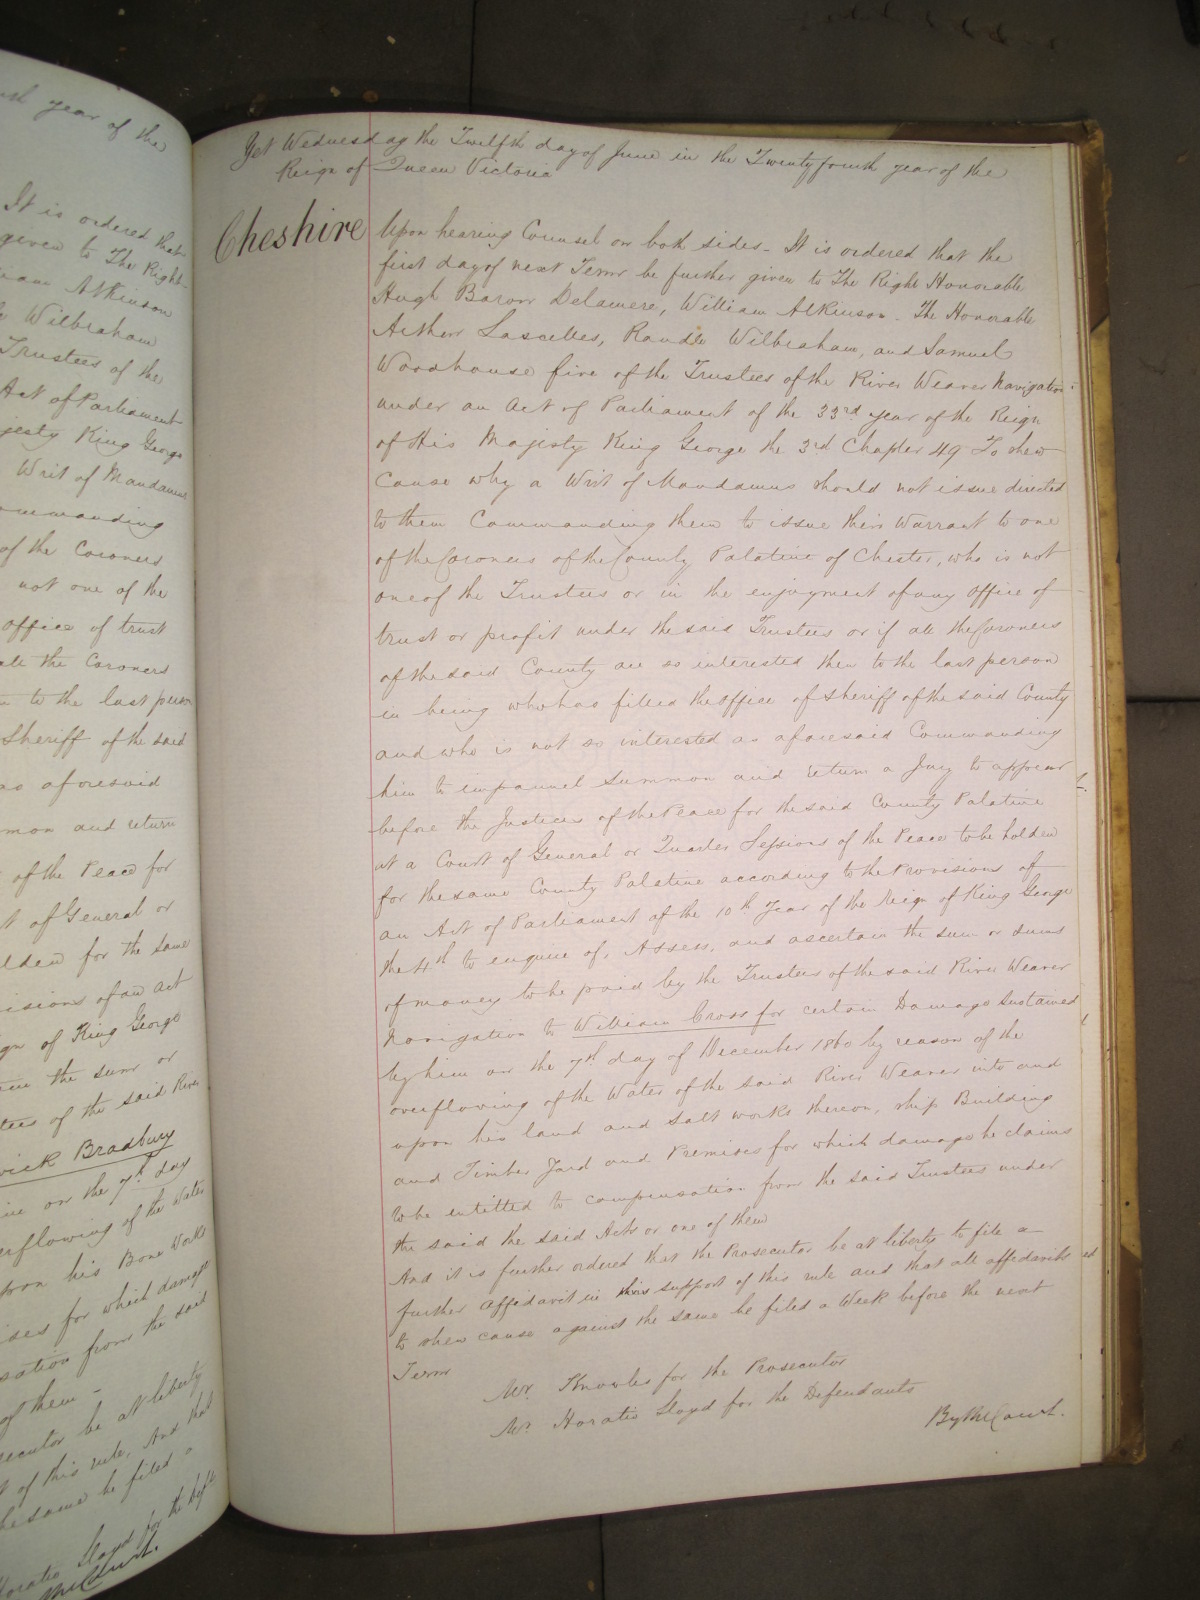 ust year of the
It is ordered that
given to The Right
iam Atkinson
Wilbraham
Trustees of the
Act of Parliament
jesty King George
Writ of Mandamus
ommanding
of the Coroners
not one of the
office of trust
all the Coroners
to the last person
Sheriff of the said
as aforesaid
mon and return
of the Peace for
t of General or
lden for the same
isions of an Act
gn of King George
the sum or
tees of the said River
wick Bradbury
on the 7th day
erflowing of the Water
upon his Bone Works
ises for which damage
sation from the said
of them -
secutor be at liberty
of this rule, And that
the same be filed a
Horatio Lloyd for the Defts
the Court.
Yet Wednesday the Twelfth day of June in the Twentyfourth year of the
Reign of Queen Victoria
Cheshire
Upon hearing Counsel on both sides - It is ordered that the
first day of next Term be further given to The Right Honorable
Hugh Baron Delamere, William Atkinson. The Honorable
Arthur Lascelles, Randle Wilbraham, and Samuel
Woodhouse five of the Trustees of the River Weaver Navigation
under an Act of Parliament of the 33rd year of the Reign
of His Majesty King George the 3rd Chapter 49 To shew
Cause why a Writ of Mandamus should not issue directed
to them Commanding them to issue their Warrant to one
of the Coroners of the County Palatine of Chester, who is not
one of the Trustees or in the enjoyment of any office of
trust or profit under the said Trustees or if all the Coroners
of the said County are so interested then to the last person
in being who has filled the office of Sheriff of the said County
and who is not so interested as aforesaid Commanding
him to impannel Summon and return a Jury to appear
before the Justices of the Peace for the said County Palatine
at a Court of General or Quarter Sessions of the Peace to be holden
for the same County Palatine according to the Provisions of
an Act of Parliament of the 10th Year of the Reign of King George
the 4th to enquire of, Assess, and ascertain the sum or sums
of money to be paid by the Trustees of the said River Weaver
Navigation to William Cross for certain Damage Sustained
by him on the 7th day of December 1860 by reason of the
overflowing of the Water of the said River Weaver into and
upon his land and Salt works thereon, ship Building
and Timber Yard and Premises for which damage he claims
to be entitled to compensation from the said Trustees under
the said the said Acts or one of them
And it is further ordered that the Prosecutor be at liberty to file a
further affidavit in this support of this rule and that all affidavits
to shew cause against the same be filed a Week before the next
Term
Mr. Knowles for the Prosecutor
Mr. Horatio Lloyd for the Defendants
By the Court.